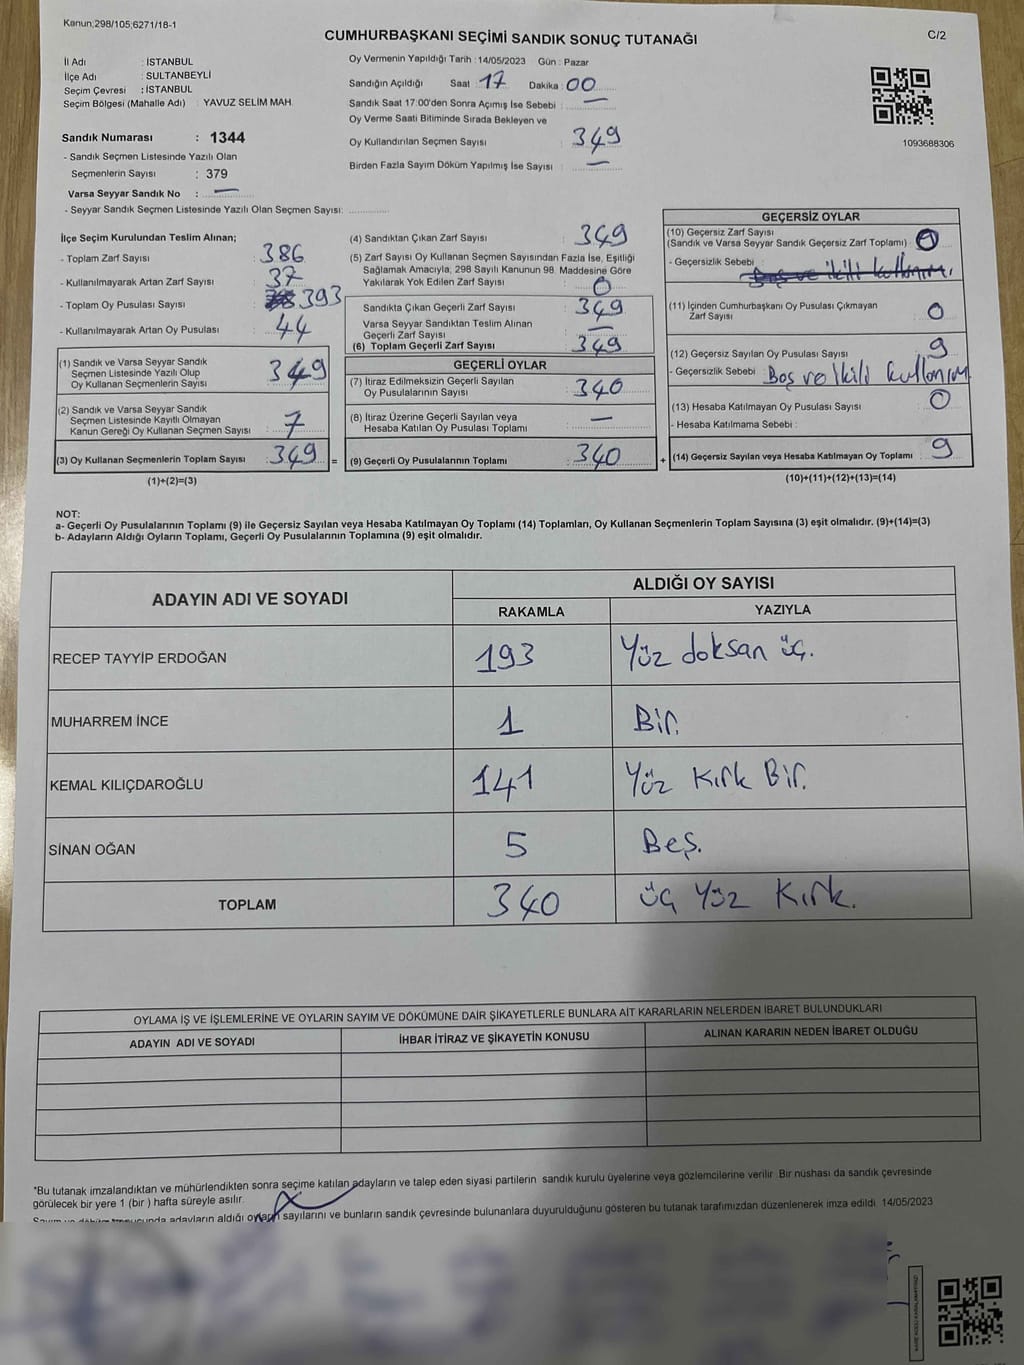 Kanun:298/105;6271/18-1
CUMHURBAŞKANI SEÇİMİ SANDIK SONUÇ TUTANAĞI
C/2
İl Adı : İSTANBUL
İlçe Adı : SULTANBEYLİ
Seçim Çevresi : İSTANBUL
Seçim Bölgesi (Mahalle Adı) : YAVUZ SELİM MAH.
Sandık Numarası : 1344
- Sandık Seçmen Listesinde Yazılı Olan
Seçmenlerin Sayısı : 379
Varsa Seyyar Sandık No : —
- Seyyar Sandık Seçmen Listesinde Yazılı Olan Seçmen Sayısı:
Oy Vermenin Yapıldığı Tarih : 14/05/2023 Gün : Pazar
Sandığın Açıldığı Saat : 17 Dakika : 00
Sandık Saat 17:00'den Sonra Açımış İse Sebebi : —
Oy Verme Saati Bitiminde Sırada Bekleyen ve
Oy Kullandırılan Seçmen Sayısı : 349
Birden Fazla Sayım Döküm Yapılmış İse Sayısı : —
1093688306
İlçe Seçim Kurulundan Teslim Alınan;
- Toplam Zarf Sayısı : 386
- Kullanılmayarak Artan Zarf Sayısı : 37
- Toplam Oy Pusulası Sayısı : 393
- Kullanılmayarak Artan Oy Pusulası : 44
(1) Sandık ve Varsa Seyyar Sandık
Seçmen Listesinde Yazılı Olup
Oy Kullanan Seçmenlerin Sayısı : 349
(2) Sandık ve Varsa Seyyar Sandık
Seçmen Listesinde Kayıtlı Olmayan
Kanun Gereği Oy Kullanan Seçmen Sayısı : 7
(3) Oy Kullanan Seçmenlerin Toplam Sayısı : 349 =
(1)+(2)=(3)
(4) Sandıktan Çıkan Zarf Sayısı : 349
(5) Zarf Sayısı Oy Kullanan Seçmen Sayısından Fazla İse, Eşitliği
Sağlamak Amacıyla, 298 Sayılı Kanunun 98. Maddesine Göre
Yakılarak Yok Edilen Zarf Sayısı : 0
Sandıkta Çıkan Geçerli Zarf Sayısı : 349
Varsa Seyyar Sandıktan Teslim Alınan
Geçerli Zarf Sayısı : —
(6) Toplam Geçerli Zarf Sayısı : 349
GEÇERLİ OYLAR
(7) İtiraz Edilmeksizin Geçerli Sayılan
Oy Pusulalarının Sayısı : 340
(8) İtiraz Üzerine Geçerli Sayılan veya
Hesaba Katılan Oy Pusulası Toplamı : —
(9) Geçerli Oy Pusulalarının Toplamı : 340 +
GEÇERSİZ OYLAR
(10) Geçersiz Zarf Sayısı
(Sandık ve Varsa Seyyar Sandık Geçersiz Zarf Toplamı) :
- Geçersizlik Sebebi : Boş ve ikili kullanımı
(11) İçinden Cumhurbaşkanı Oy Pusulası Çıkmayan
Zarf Sayısı : 0
(12) Geçersiz Sayılan Oy Pusulası Sayısı : 9
- Geçersizlik Sebebi : Boş ve ikili kullanım
(13) Hesaba Katılmayan Oy Pusulası Sayısı : 0
- Hesaba Katılmama Sebebi :
(14) Geçersiz Sayılan veya Hesaba Katılmayan Oy Toplamı : 9
(10)+(11)+(12)+(13)=(14)
NOT:
a- Geçerli Oy Pusulalarının Toplamı (9) ile Geçersiz Sayılan veya Hesaba Katılmayan Oy Toplamı (14) Toplamları, Oy Kullanan Seçmenlerin Toplam Sayısına (3) eşit olmalıdır. (9)+(14)=(3)
b- Adayların Aldığı Oyların Toplamı, Geçerli Oy Pusulalarının Toplamına (9) eşit olmalıdır.
ADAYIN ADI VE SOYADI ALDIĞI OY SAYISI
RAKAMLA YAZIYLA
RECEP TAYYİP ERDOĞAN 193 Yüz doksan üç.
MUHARREM İNCE 1 Bir.
KEMAL KILIÇDAROĞLU 141 Yüz Kırk Bir.
SİNAN OĞAN 5 Beş.
TOPLAM 340 üç Yüz Kırk.
OYLAMA İŞ VE İŞLEMLERİNE VE OYLARIN SAYIM VE DÖKÜMÜNE DAİR ŞİKAYETLERLE BUNLARA AİT KARARLARIN NELERDEN İBARET BULUNDUKLARI
ADAYIN ADI VE SOYADI İHBAR İTİRAZ VE ŞİKAYETİN KONUSU ALINAN KARARIN NEDEN İBARET OLDUĞU
*Bu tutanak imzalandıktan ve mühürlendikten sonra seçime katılan adayların ve talep eden siyasi partilerin sandık kurulu üyelerine veya gözlemcilerine verilir. Bir nüshası da sandık çevresinde
görülecek bir yere 1 (bir ) hafta süreyle asılır.
adayların aldığı oyların sayılarını ve bunların sandık çevresinde bulunanlara duyurulduğunu gösteren bu tutanak tarafımızdan düzenlenerek imza edildi. 14/05/2023